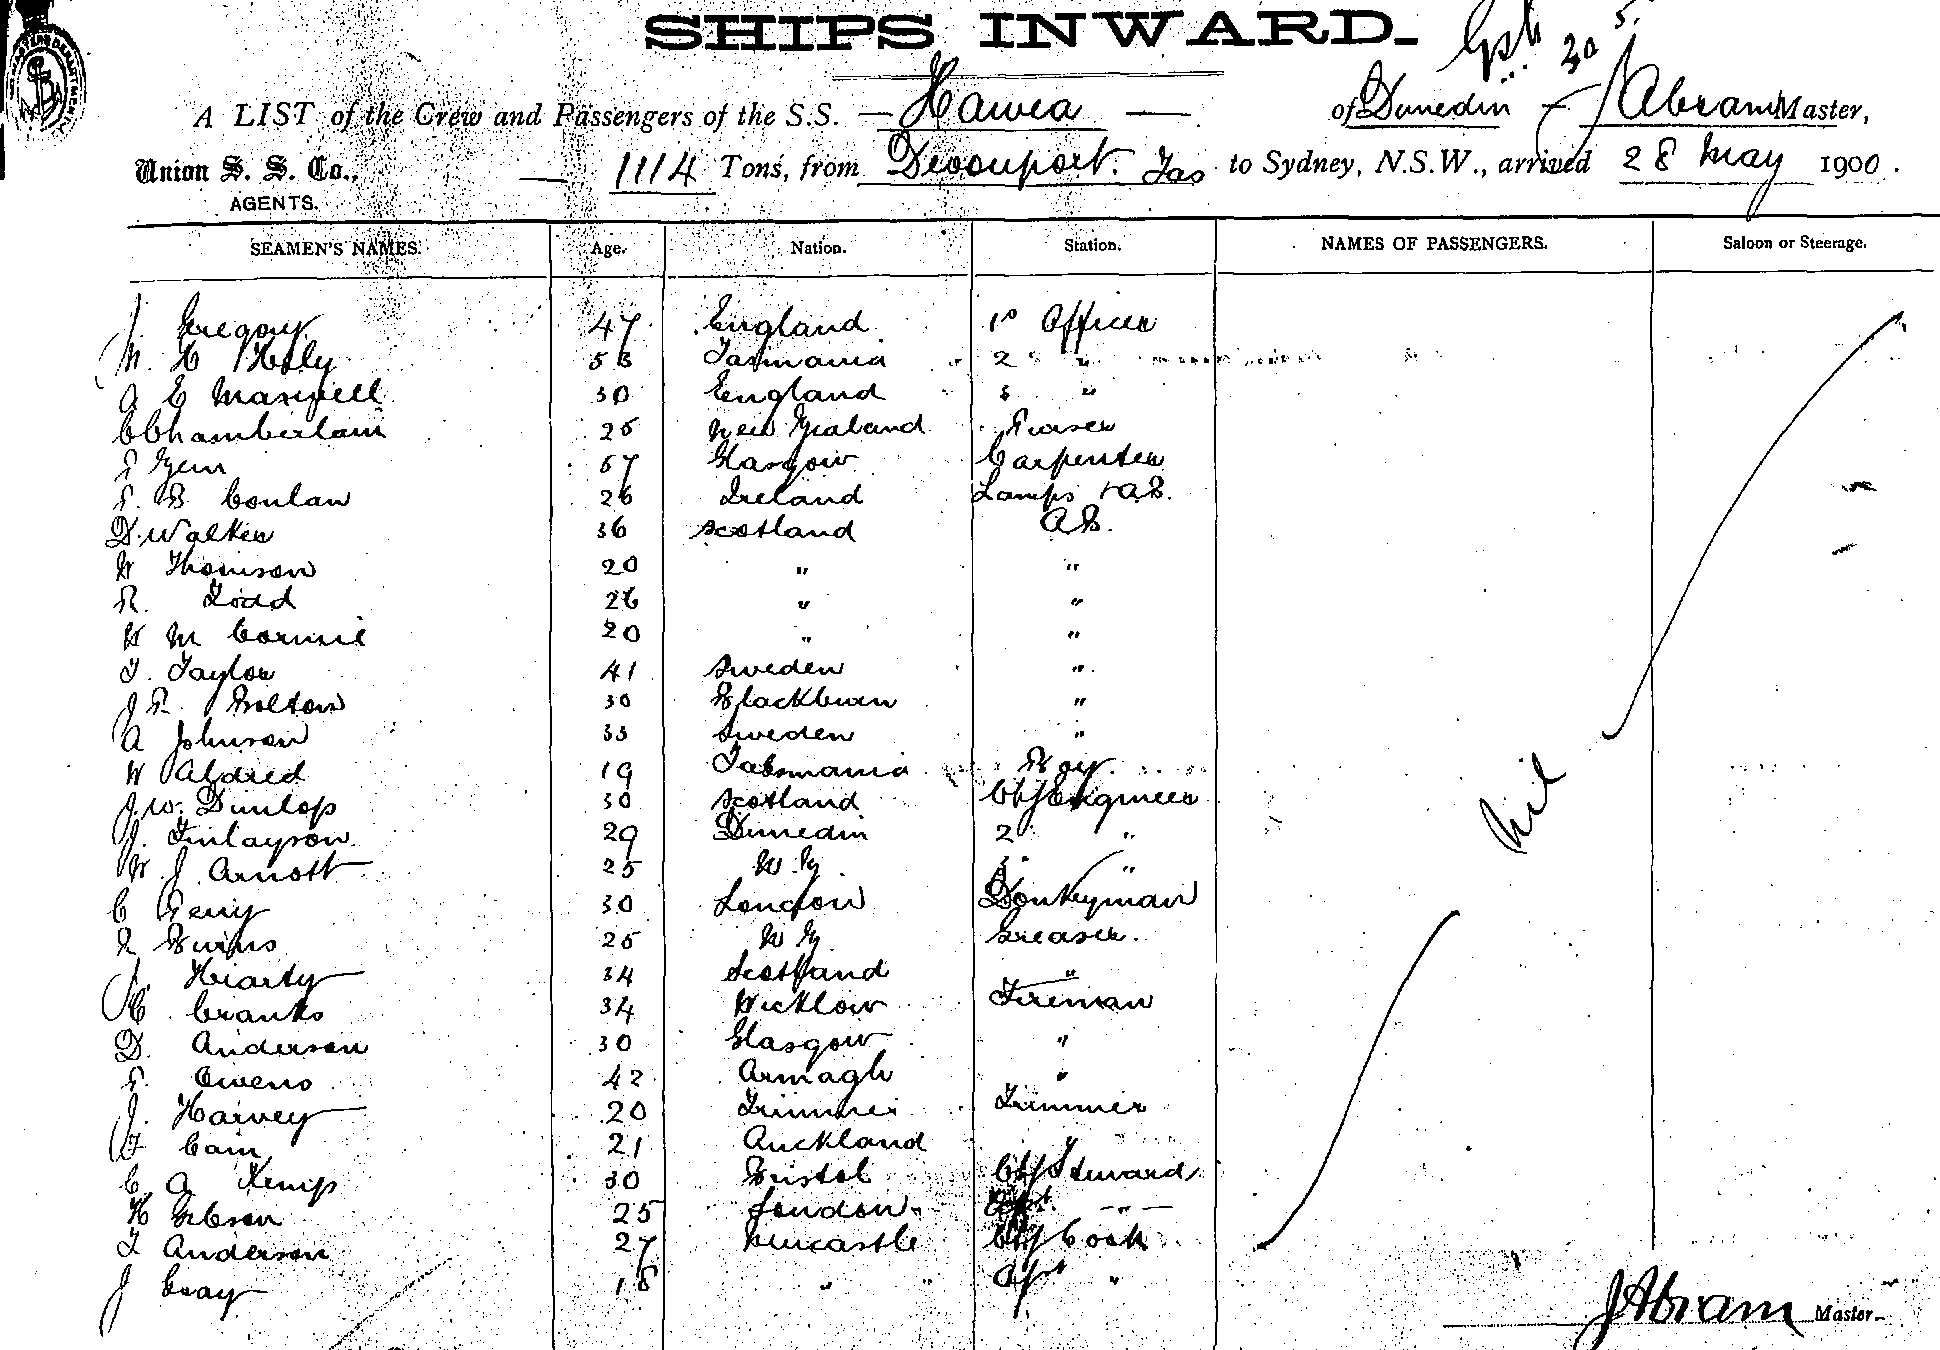 SHIPS INWARD.
30 5.
A LIST of the Crew and Passengers of the S.S. — Hawea — of Dunedin J Abram Master,
Union S. S. Co., AGENTS. — 1114 Tons, from Devonport. Tas to Sydney, N.S.W., arrived 28 May 1900.
SEAMEN'S NAMES. Age. Nation. Station. NAMES OF PASSENGERS. Saloon or Steerage.
J. Gregory 47 England 1º Officer
M. H Holy 53 Tasmania 2 "
A E Maxwell 30 England 3 "
C Chamberlain 25 New Zealand Purser
57 Glasgow Carpenter
P. B Conlan 26 Ireland Lamps & A.B.
D. Walker 36 Scotland A.B.
W Thomson 20 " "
R. Todd 26 " "
W M Cormie 20 " "
T. Taylor 41 Sweden "
J R. Bolton 30 Blackburn "
A Johnson 33 Sweden "
W Aldred 19 Tabsmania Boy.
J. W. Dunlop 30 Scotland Chf Engineer
J. Finlayson 29 Dunedin 2 "
W. J. Arnott 25 N Z 3 "
C Perry 30 London Donkeyman
R Burns 25 N Z Greaser.
J. Hearty 34 Scotland "
C Cranks 34 Wicklow Fireman
D. Anderson 30 Glasgow "
P. Owens 42 Armagh "
J. Harvey 20 Trimmer Trimmer
T Cain 21 Auckland "
C A Kemp 30 Bristol Chf Steward
H Gibson 25 London "
T Anderson 27 Newcastle Chf Cook
J Gray 18 " " "
Nil
J Abram Master.